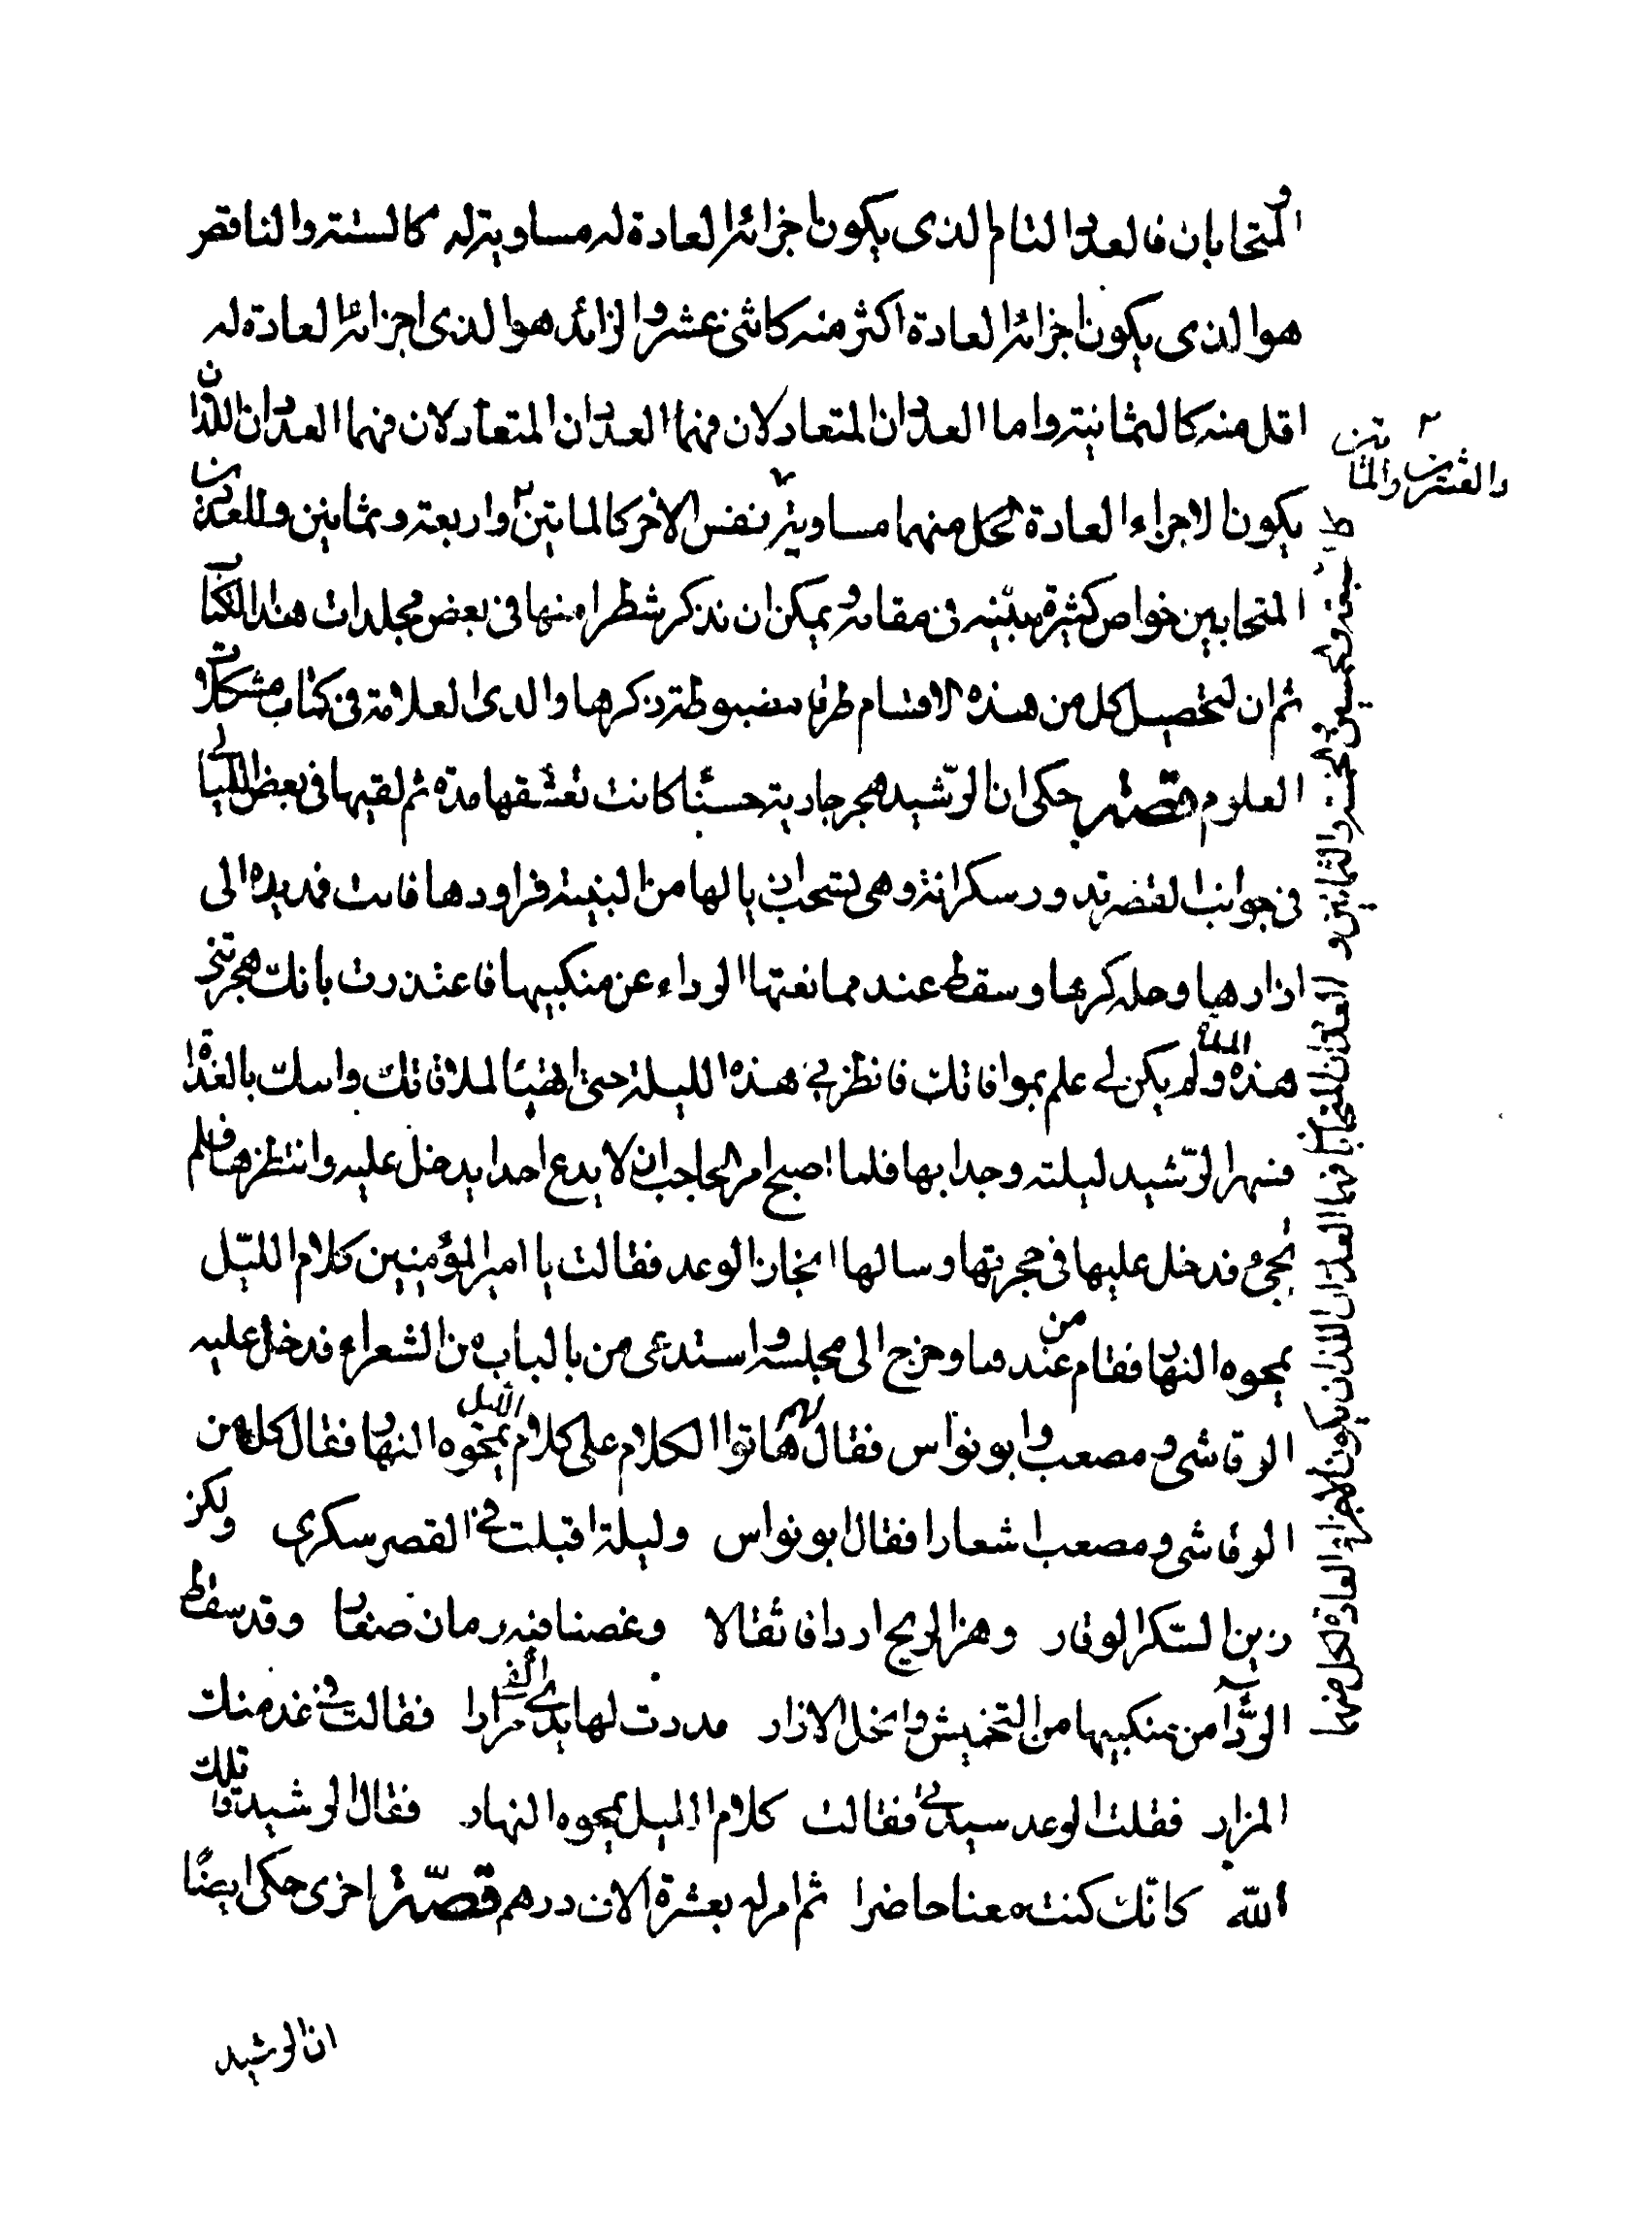 والمتحابان فالعدد التام الذي يكون اجزائه العادة له مساوية له كالستة والناقص
هو الذي يكون اجزائه العادة اكثر منه كاثنى عشر والزائد هو الذي اجزائه العادة له
اقل منه كالثمانية واما العددان المتعادلان فهما العددان المتعادلان فهما العددان اللذان
يكونا لاجزاء العادة لكل منهما مساوية نفس الاخر كالمايتين واربعة وثمانين وللعددين
المتحابين خواص كثيرة مبيّنه في مقامه ويمكن ان نذكر شطرا منها في بعض مجلدات هذا الكتاب
ثم ان لتحصيل كل من هذه الاقسام طرقا مضبوطة ذكرها والدى العلامة في كتاب مشكلات
العلوم قصّة حكى ان الرّشيد هجر جارية حسنًا كانت تعشقها مدة ثم لقيها في بعض الليالي
في جوانب القصر تدور سكرانة وهي تسحب اذيالها من التيه فراودها فابت فمد يده الى
ازارها وحله كرها وسقط عند ممانعتها الرداء عن منكبيها فاعتذرت بانك هجرتني
هذه المدّة ولم يكن لي علم بموافاتك فانظرني هذه الليلة حتى اتهيّا لملاقاتك واسلك بالغداة
فسهر الرّشيد ليلته وجدا بها فلما اصبح امر الحاجب ان لا يدع احدا يدخل عليه وانتظرها فلم
تجئ فدخل عليها في حجرتها وسالها انجاز الوعد فقالت يا امير المؤمنين كلام الليّل
يمحوه النهار فقام من عندها وخرج الى مجلسه واستدعى من بالباب من الشعراء فدخل عليه
الرقاشي ومصعب وابو نواس فقال لهم هاتوا الكلام على كلام الليل يمحوه النهار فقال كل من
الرقاشي ومصعب اشعارا فقال ابو نواس وليلة اقبلت في القصر سكرى ولكن
زين السّكر الوقار وهز الريح اردافا ثقالا وغصنا فيه رمان صغار وقد سقط
الرّدا من منكبيها من التخميش وانحل الازار مددت لها يدي مرارا فقالت في غد منك
المزار فقلت الوعد سيدتي فقالت كلام الليل يمحوه النهار فقال الرشيد قاتلك
اللّه كانّك كنت معنا حاضرا ثم امر له بعشرة الاف درهم قصّة اخرى حكى ايضًا
ان الرشيد
والعشرين والمأتين
العددان المتحابان فهما العددان اللذان يكونا لاجزائه العادة لكل منهما